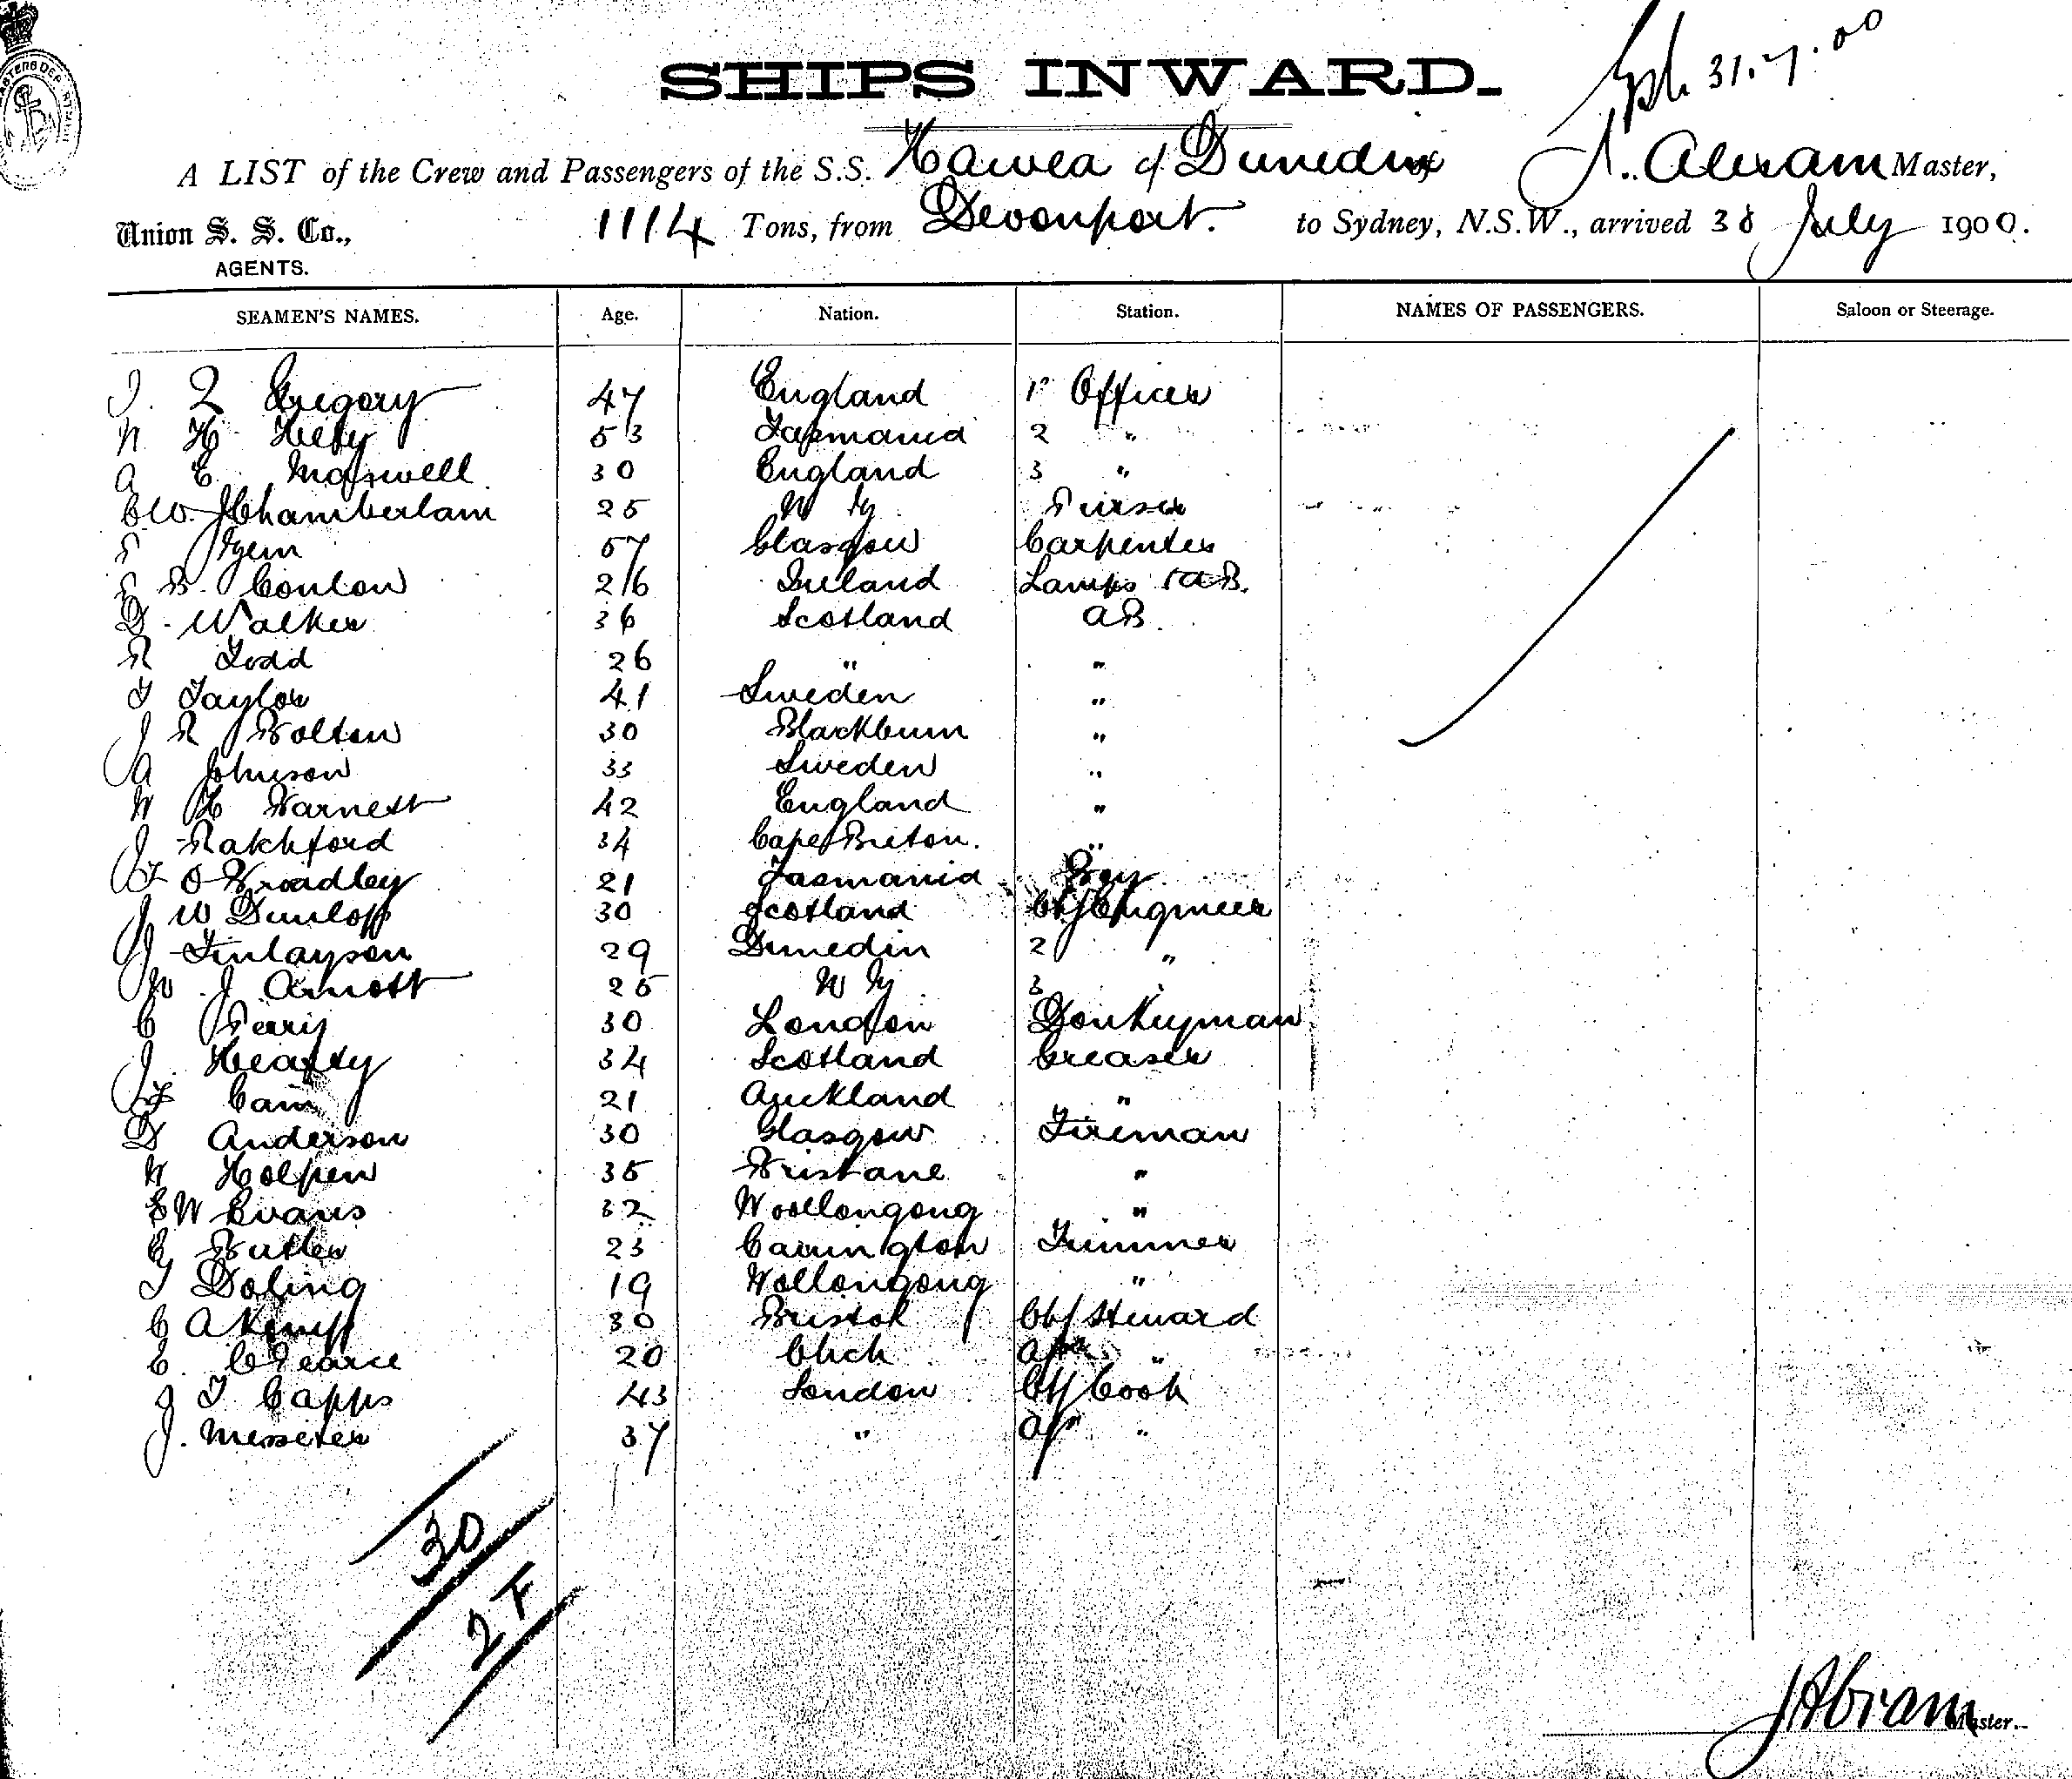 31.7.00
SHIPS INWARD.
A LIST of the Crew and Passengers of the S.S. Hawea of Dunedin J. Abram Master,
Union S. S. Co., 1114 Tons, from Devonport. to Sydney, N.S.W., arrived 30 July 1900.
AGENTS.
SEAMEN'S NAMES. Age. Nation. Station. NAMES OF PASSENGERS. Saloon or Steerage.
Gregory 47 England 1st Officer
N H 53 Tasmania 2 "
A E Maxwell 30 England 3 "
C W Chamberlain 25 N Z Purser
P 57 Glasgow Carpenter
P B. Conlon 26 Ireland Lamps & AB.
D. Walker 36 Scotland AB.
R Todd 26 " "
T Taylor 41 Sweden "
J R Bolton 30 Blackburn "
A Johnson 33 Sweden "
W H Barnett 42 England "
J Ratchford 34 Cape Breton. "
F O Bradley 21 Tasmania Boy
J W Dunlop 30 Scotland Chf Engineer
J Finlayson 29 Dunedin 2 "
W. J Arnott 25 N Z 3 "
C 30 London Donkeyman
J. 34 Scotland Greaser
F Cam 21 Auckland "
D Anderson 30 Glasgow Fireman
W Holpen 35 Brisbane "
E W Evans 32 Woollongong "
G Butler 23 Carrington Trimmer
T Doling 19 Wollongong "
C A Kempf 30 Bristol Chf Steward
C. C Pearce 20 Chch "
J T Capps 43 London Chf Cook
J. Messeter 37 " "
30
2 F
J Abram Master.